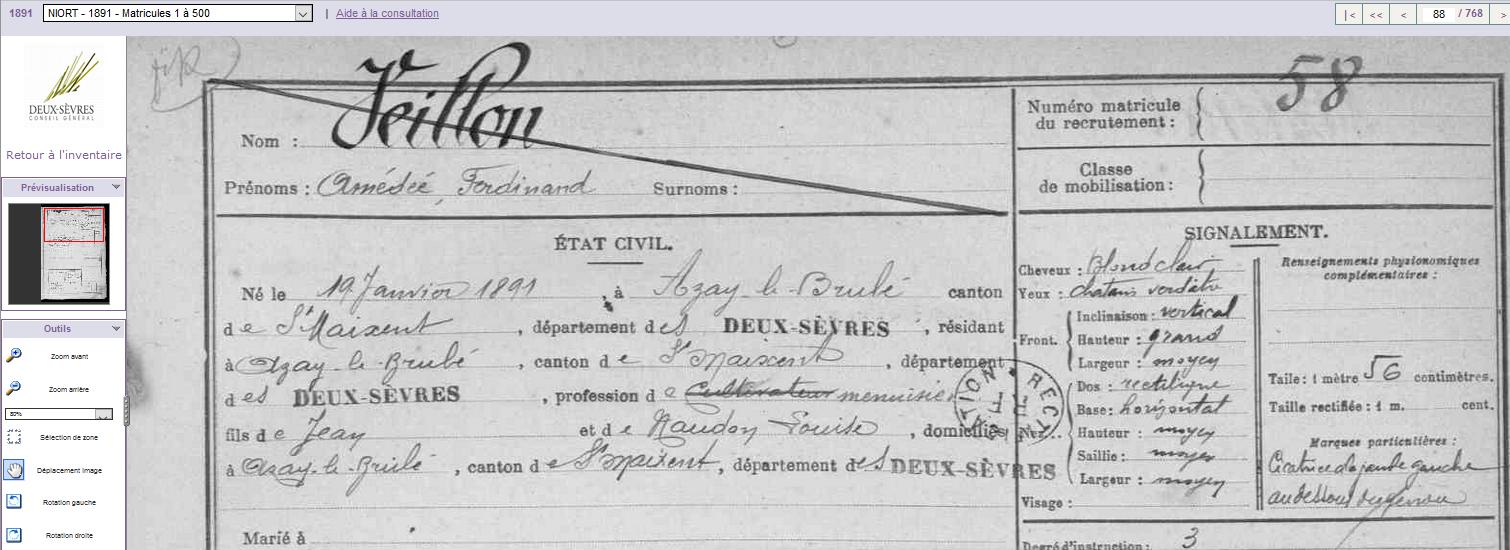 1891 NIORT - 1891 - Matricules 1 à 500 | Aide à la consultation |< << < 88 / 768 >
DEUX-SÈVRES
CONSEIL GÉNÉRAL
Retour à l'inventaire
Prévisualisation
Outils
Zoom avant
Zoom arrière
80%
Sélection de zone
Déplacement image
Rotation gauche
Rotation droite
Nom : Veillon
Prénoms : Amédée Ferdinand Surnoms :
Numéro matricule du recrutement : 58
Classe de mobilisation :
ÉTAT CIVIL.
Né le 19 Janvier 1891, à Azay-le-Brulé canton
de St Maixent, département des DEUX-SÈVRES, résidant
à Azay-le-Brulé, canton de St Maixent, département
des DEUX-SÈVRES, profession de Cultivateur menuisier
fils de Jean et de Naudon Louise, domiciliés
à Azay-le-Brulé, canton de St Maixent, département des DEUX-SÈVRES
Marié à
SIGNALEMENT.
Cheveux : Blond clair
Yeux : chatain verdâtre
Front. Inclinaison : vertical
Hauteur : grand
Largeur : moyen
Nez. Dos : rectiligne
Base : horizontal
Hauteur : moyen
Saillie : moyen
Largeur : moyen
Visage :
Degré d'instruction : 3
Renseignements physionomiques
complémentaires :
Taille : 1 mètre 56 centimètres.
Taille rectifiée : 1 m. cent.
Marques particulières :
Cicatrice de jambe gauche
au dessous du genou